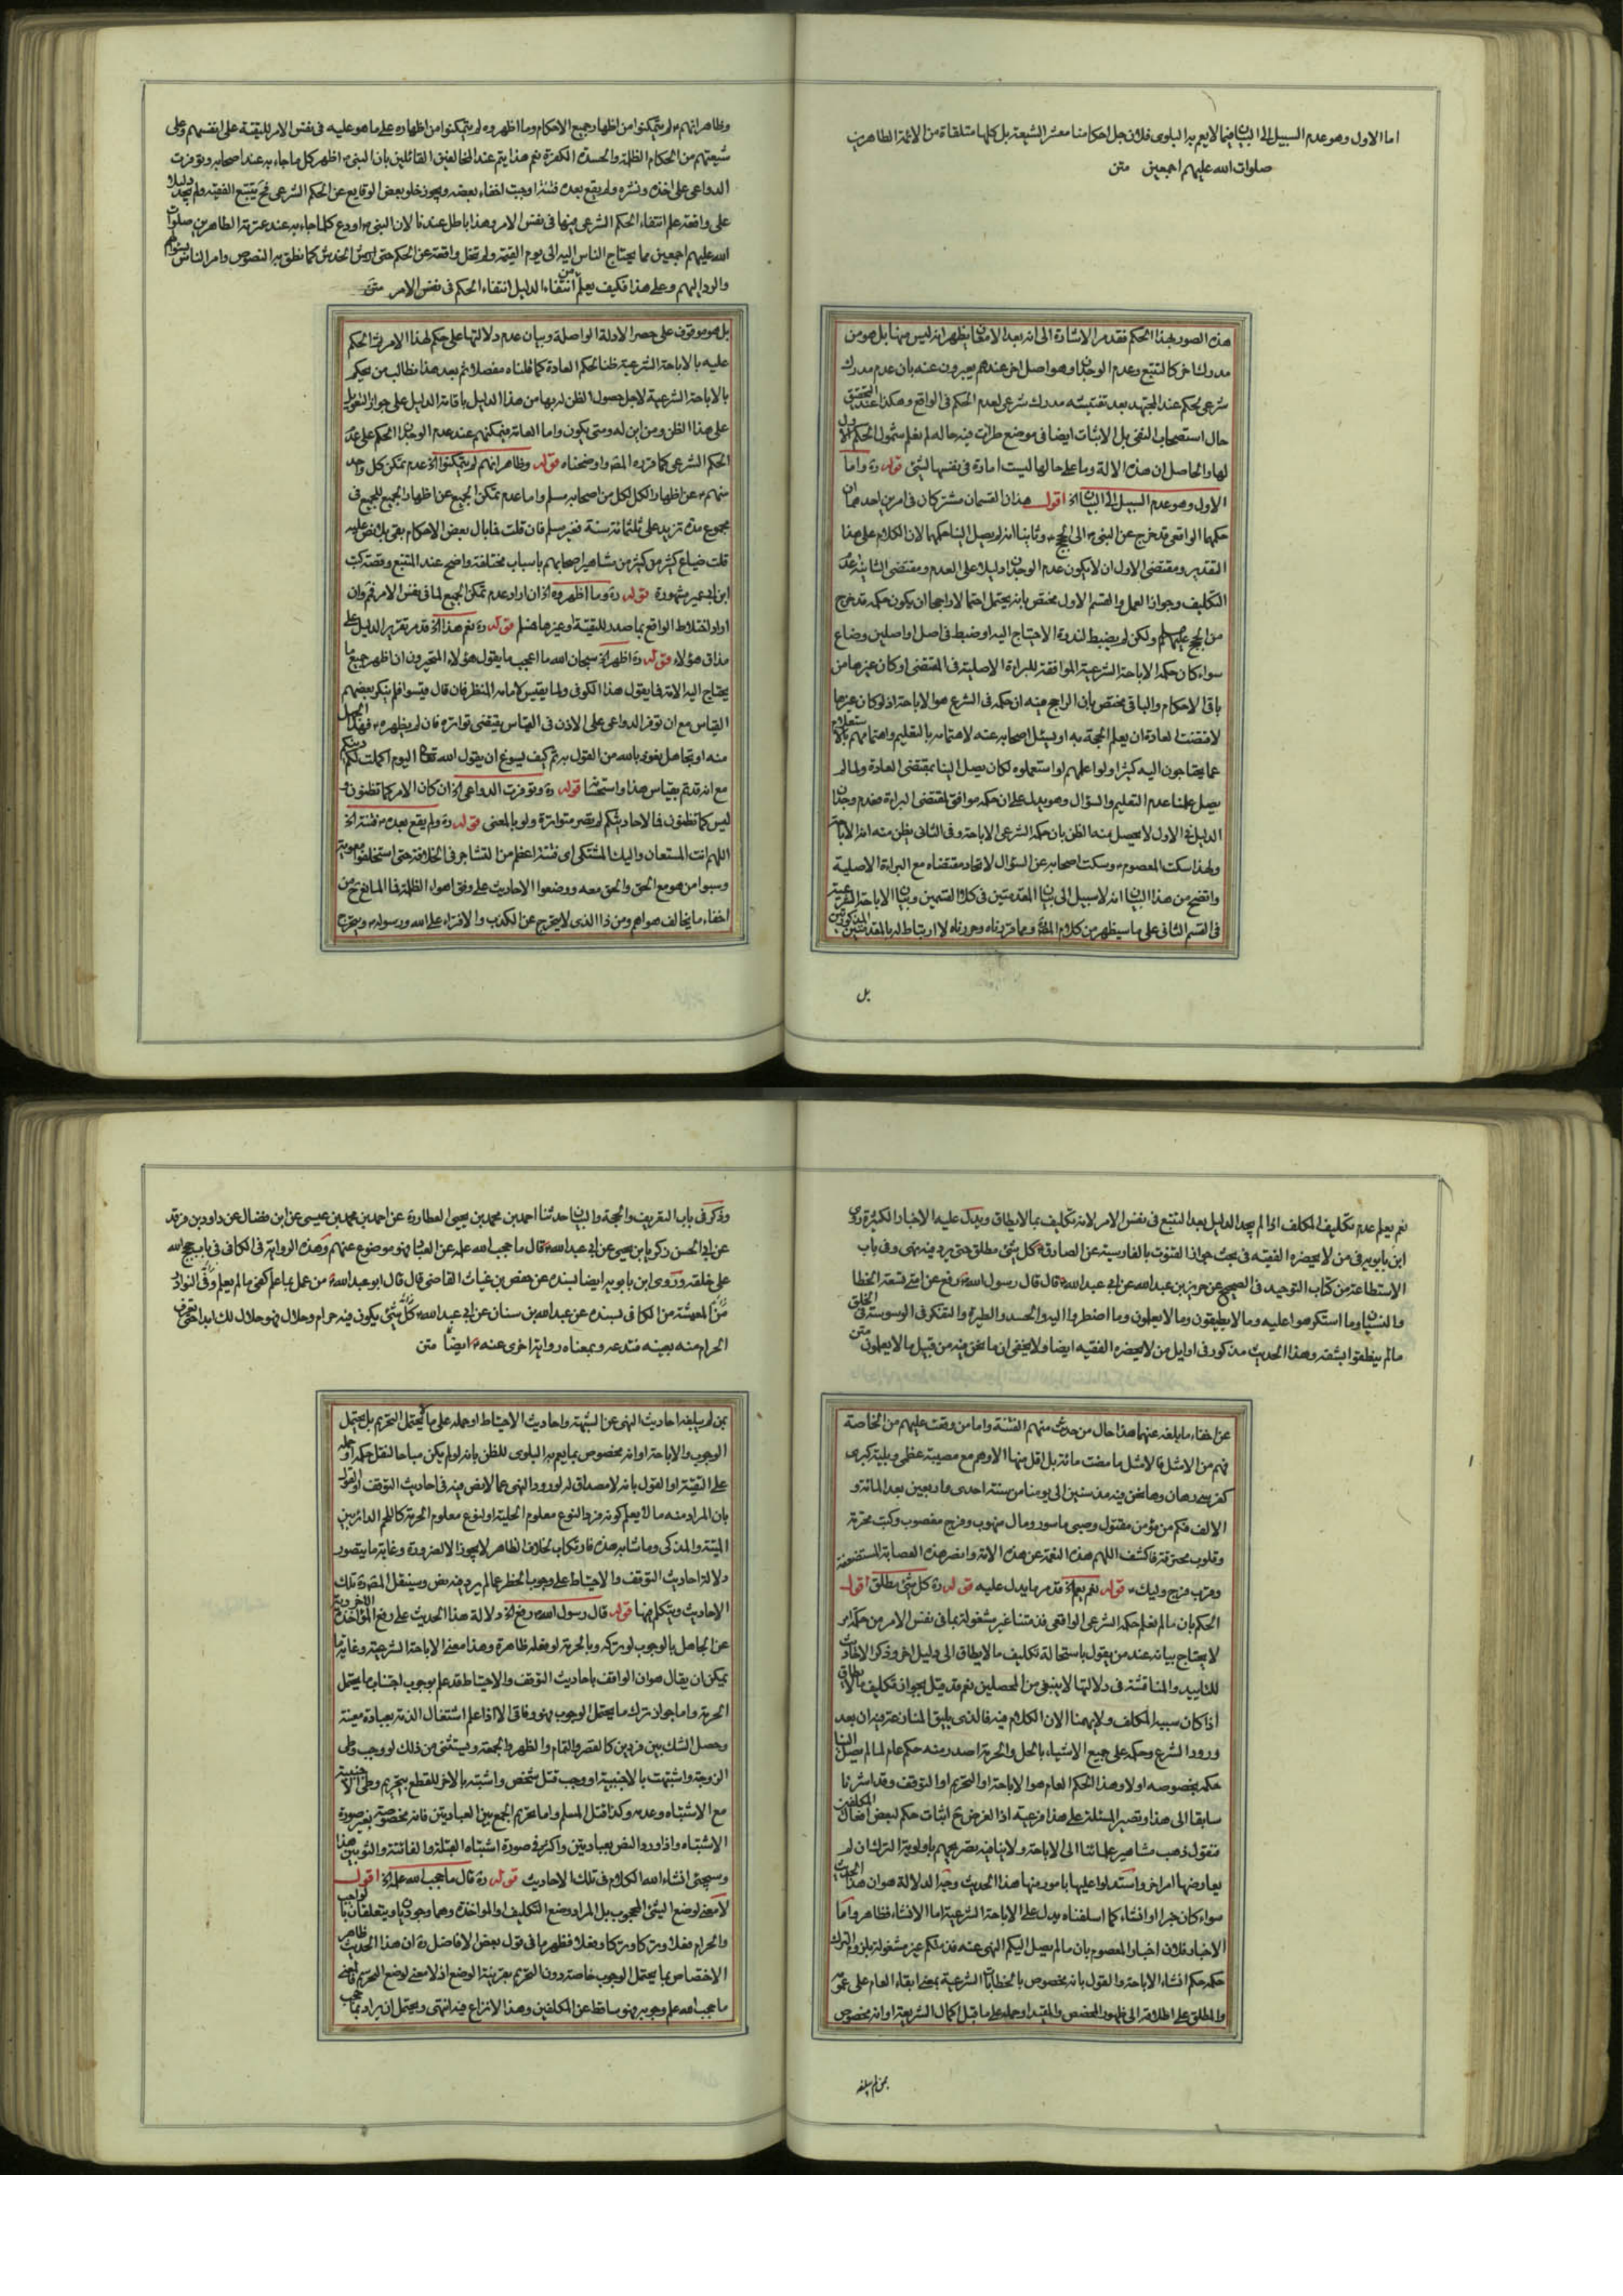 اما الاول وهو عدم السبيل الى البيان فيما لا يعم به البلوى فلان جل احكامنا معشر الشيعة بل كلها متلقاة من الائمة الطاهرين
صلوات الله عليهم اجمعين متن
هذه الصور بهذا الحكم فقد مر الاشارة الى انه بعد الامعان يظهر انه ليس منها بل هو من
مدرك اخر كالتتبع وعدم الوجدان وهو اصل اخر عندهم يعبرون عنه بان عدم مدرك
شرعي لحكم عند المجتهد بعد تفتيشه مدرك شرعي لعدم الحكم في الواقع وهكذا عند التحقيق
حال استصحاب النفي بل الاثبات ايضا في موضع طرات فيه حالة لم نعلم شمول الحكم الاول
لها والحاصل ان هذه الالة وما على حالها ليست امارة في نفسها لشئ قوله ره واما
الاول وهو عدم السبيل الى البيان الخ اقول هذان القسمان مشتركان في امرين احدهما ان
حكمها الواقعي قد خرج عن النبي ص الى الحجج وثانيا انه لم يصل الينا حكمها لان الكلام على هذا
التقدير ومقتضى الاول ان لا يكون عدم الوجدان دليلا على العدم ومقتضى الثاني عدم
التكليف وجواز العمل والقسم الاول مختص بانه يحتمل احتمالا راجحا ان يكون حكمه قد خرج
من الحجج عليهم ولكن لم يضبط لندرة الاحتياج اليه او ضبط في اصل او اصلين وضاع
سواء كان حكمه الاباحة الشرعية الموافقة للبراءة الاصلية في المقتضى او كان غيرها من
باقي الاحكام والباقي مختص بان الراجح فيه ان حكمه في الشرع هو الاباحة اذ لو كان غيرها
لاقتضت العادة ان يعلم الحجة به او يسئل اصحابه عنه لاهتمامه بالتعليم واهتمامهم بالاستعلام
عما يحتاجون اليه كثيرا ولو اعلمهم لو استعملوه لكان يصل الينا بمقتضى العادة ولما لم
يصل علمنا عدم التعليم والسؤال وهو يدل على ان حكمه موافق لمقتضى البراءة فعدم وجدان
الدليل في الاول لا يحصل منه الظن بان حكمه الشرعي الاباحة وفي الثاني يظن منه انه الاباحة
ولهذا سكت المعصوم وسكت اصحابه عن السؤال لاتحاد مقتضاه مع البراءة الاصلية
واتضح من هذا البيان انه لا سبيل الى بيان المقدمتين في كلا القسمين وبيان الاباحة الشرعية
في القسم الثاني على ما سيظهر من كلام المصنف ومما قررناه وحررناه لا ارتباط له بالمقدمتين المذكورتين
بل
وظاهر انهم لم يتمكنوا من اظهار جميع الاحكام وما اظهروه لم يتمكنوا من اظهاره على ما هو عليه في نفس الامر للتقية على انفسهم وعلى
شيعتهم من الحكام الظلمة والحسدة الكفرة نعم هذا يتم عند المخالفين القائلين بان النبي ص اظهر كل ما جاء به عند اصحابه وتوفرت
الدواعي على اخذه ونشره ولم يقع بعده فتنة اوجبت اخفاء بعضه ويجوز خلو بعض الوقايع عن الحكم الشرعي فح يتتبع الفقيه ولم يجد دليلا
على واقعة علم انتفاء الحكم الشرعي فيها في نفس الامر وهذا باطل عندنا لان النبي ص اودع كلما جاء به عند عترته الطاهرين صلوات
الله عليهم اجمعين مما يحتاج الناس اليه الى يوم القيمة ولم تخل واقعة عن الحكم حتى ارش الخدش كما نطق به النصوص وامر الناس بسؤالهم
والرد اليهم وعلى هذا فكيف يعلم من انتفاء الدليل انتفاء الحكم في نفس الامر متن
بل هو موقوف على حصر الادلة الواصلة وبيان عدم دلالتها على حكم لهذا الامر
عليه بالاباحة الشرعية ظنا لحكم العادة كما قلناه مفصلا ثم بعد هذا نطالب من يحكم
بالاباحة الشرعية لاجل حصول الظن له بها من هذا الدليل باقامة الدليل على جواز التعويل
على هذا الظن ومن اين له ومتى يكون واما العامة فيمكنهم عند عدم الوجدان الحكم على عدم
الحكم الشرعي كما قرره المصنف واوضحناه قوله وظاهر انهم لم يتمكنوا الخ عدم تمكن كل واحد
منهم عن اظهار الكل لكل من اصحابه مسلم واما عدم تمكن الجميع عن اظهار الجميع للجميع في
مجموع مدة تزيد على ثلثمائة سنة فغير مسلم فان قلت فما بال بعض الاحكام بقي بلا نص عليه
قلت ضياع كثير من كثير من مشاهير اصحابهم باسباب مختلفة واضح عند المتتبع وقصة كتب
ابن ابي عمير مشهورة قوله ره وما اظهروه الخ ان اراد عدم تمكن الجميع لما في نفس الامر فمم وان
اراد اختلاط الواقع بما صدر للتقية او غيرها فمسلم قوله ره نعم هذا الخ قد مر تقرير الدليل على
مذاق هؤلاء قوله ره اظهر الخ سبحان الله ما اعجب ما يقول هؤلاء المتحيرون ان اظهر جميع ما
يحتاج اليه الامة فما يقول هذا الكوفي ولما يقيس لامامه المنتظر فان قال قيسوا فلم ينكر بعضهم
القياس مع ان توفر الدواعي على الاذن في القياس يقتضي تواتره فان لم يظهره فهذا الجهل
منه او تجاهل نعوذ بالله من القول به ثم كيف يسوغ ان يقول الله تعالى اليوم اكملت لكم دينكم
مع انه قد تم بقياس هذا واستحسانا قوله ره وتوفرت الدواعي الخ ان كان الامر كما تظنون و
ليس كما تظنون فما الاحاديثكم لم يصر متواترة ولو بالمعنى قوله ره ولم يقع بعده فتنة الخ
اللهم انت المستعان واليك المشتكى اي فتنة اعظم من التشاجر في الخلافة حتى استخلفوا معوية
وسبوا من هو مع الحق والحق معه ووضعوا الاحاديث على وفق اهواء الظلمة فما المانع ح من
اخفاء ما يخالف هواهم ومن ذا الذي لا يتحرج عن الكذب والافتراء على الله ورسوله ويتحرج
نعم يعلم عدم تكليف المكلف اذا لم يجد الدليل بعد التتبع في نفس الامر لانه تكليف بما لا يطاق ويدل عليه الاخبار الكثيرة روى
ابن بابويه في من لا يحضره الفقيه في بحث جواز القنوت بالفارسية عن الصادق كل شئ مطلق حتى يرد فيه نهي وفي باب
الاستطاعة من كتاب التوحيد في الصحيح عن حريز بن عبد الله عن ابي عبد الله قال قال رسول الله رفع عن امتي تسعة الخطا
والنسيان وما استكرهوا عليه وما لا يطيقون وما لا يعلمون وما اضطروا اليه والحسد والطيرة والتفكر في الوسوسة في الخلق
ما لم ينطقوا بشفة وهذا الحديث مذكور في اوايل من لا يحضره الفقيه ايضا ولا يخفى ان ما نحن فيه من قبيل ما لا يعلمون متن
عن اخفاء ما بلغه عنهما هذا حال من حدثت منهم الفتنة واما من وقعت عليهم من الخاصة
فهم من الامثل فالامثل ما مضت مائة بل اقل منها الا وهم مع مصيبة عظمى وبلية كبرى
كفرسى رهان وها نحن فيه مذ سنين الى يومنا من سنة احدى واربعين بعد المائة و
الالف فكم من مؤمن مقتول وصبي ماسور ومال منهوب وفرج مغصوب وكتب محرقة
وقلوب محترقة فاكشف اللهم هذه الغمة عن هذه الامة وانصر هذه العصابة المستضعفة
وقرب فرج وليك قوله نعم يعلم الخ قد مر ما يدل عليه قوله ره كل شئ مطلق اقول
الحكم بان ما لم نعلم حكمه الشرعي الواقعي فذمتنا غير مشغولة بما في نفس الامر من حكمه امر
لا يحتاج بيانه عند من يقول باستحالة تكليف ما لا يطاق الى دليل اخر وذكر الاحاديث
للتاييد والمناقشة في دلالتها لا ينبغي من المحصلين نعم قد قيل بجواز تكليف ما لا يطاق
اذا كان سببه المكلف ولا يهمنا الان الكلام فيه فالذي يليق المنازعة فيه ان بعد
ورود الشرع وحكمه على جميع الاشياء بالحل والحرمة اصدر منه حكم عام لما لم يصل الينا
حكمه بخصوصه اولا وهذا الحكم العام هو الاباحة او التحريم او التوقف وقد اشرنا
سابقا الى هذا وتصير المسئلة على هذا فرعية اذ الغرض ح اثبات حكم لبعض افعال المكلفين
فنقول ذهب مشاهير علمائنا الى الاباحة ولا ينافيه تصريحهم باولوية الترك ان لم
يعارضها امر اخر واستدلوا عليها بامور منها هذا الحديث وجه الدلالة هو ان هذا الحديث
سواء كان خبرا او انشاء كما اسلفناه يدل على الاباحة الشرعية اما الانشاء فظاهر واما
الاخبار فلان اخبار المعصوم بان ما لم يصل اليكم النهي عنه فذمتكم غير مشغولة بلزوم الترك
حكمه حكم انشاء الاباحة والقول بانه مخصوص بالخطابات الشرعية بمعنى ابقاء العام على عمومه
والمطلق على اطلاقه الى ظهور المخصص والمقيد او حمله على ما قبل اكمال الشريعة او انه مخصوص
بمن لم يبلغه
وذكر في باب التعريف والحجة والبيان حدثنا احمد بن محمد بن يحيى العطار ره عن احمد بن محمد بن عيسى عن ابن فضال عن داود بن فرقد
عن ابي الحسن زكريا بن يحيى عن ابي عبد الله قال ما حجب الله علمه عن العباد فهو موضوع عنهم وهذه الرواية في الكافي في باب حجج الله
على خلقه وروى ابن بابويه ايضا بسنده عن حفص بن غياث القاضي قال قال ابو عبد الله من عمل بما علم كفي ما لم يعلم وفي النوادر
من المعيشة من الكافي بسنده عن عبد الله بن سنان عن ابي عبد الله كل شئ يكون فيه حرام وحلال فهو حلال لك ابدا حتى تعرف
الحرام منه بعينه فتدعه وبمعناه رواية اخرى عنه ايضا متن
بمن لم يبلغه احاديث النهي عن الشبهة واحاديث الاحتياط او حمله على ما لا يحتمل التحريم بل يحتمل
الوجوب والاباحة او انه مخصوص بما يعم به البلوى للظن بانه لو لم يكن مباحا لنقل حكمه او حمله
على التقية او القول بانه لا مصداق له لورود النهي عما لا نص فيه في احاديث التوقف او القول
بان المراد منه ما لا يعلم كونه فردا لنوع معلوم الحلية او لنوع معلوم الحرمة كاللحم الدائر بين
الميتة والمذكى وما شابه هذه فارتكاب لخلاف الظاهر لا يجوز الا لضرورة وغاية ما يتصور
دلالة احاديث التوقف والاحتياط على وجوب الحظر عما لم يرد فيه نص وسينقل المصنف ره تلك
الاحاديث ويتكلم فيها قوله قال رسول الله رفع الخ دلالة هذا الحديث على رفع المؤاخذة الاخروية
عن الجاهل بالوجوب لو تركه وبالحرمة لو فعله ظاهرة وهذا معنى الاباحة الشرعية وغاية ما
يمكن ان يقال هو ان الواقف باحاديث التوقف والاحتياط قد علم بوجوب اجتناب ما يحتمل
الحرمة واما جواز ترك ما يحتمل الوجوب فهو وفاقي الا اذا علم اشتغال الذمة بعبادة معينة
وحصل الشك بين فردين كالقصر والتمام والظهر والجمعة ويستثنى من ذلك لو وجب وطي
الزوجة واشتبهت بالاجنبية او وجب قتل شخص واشتبه بالاخر للقطع بتحريم وطي الاجنبية
مع الاشتباه وعدمه وكذا قتل المسلم واما تحريم الجمع بين العبادتين فانه مخصوص بغير صورة
الاشتباه واذا ورد النص بعبادتين واكثر في صورة اشتباه القبلة والفائتة والثوبين هذا
وسيجئ انشاء الله الكلام في تلك الاحاديث قوله ره قال ما حجب الله علمه الخ اقول
لا معنى لوضع الشئ المحجوب بل المراد وضع التكليف او المؤاخذة وهما وجوديان ويتعلقان بالواجب
والحرام فعلا وتركا وتركا وفعلا فظهر ما في قول بعض الافاضل ره ان هذا الحديث ظاهر
الاختصاص بما يحتمل الوجوب خاصة دون التحريم بقرينة الوضع اذ لا معنى لوضع التحريم فالمعنى
ما حجب الله علم وجوبه فهو ساقط عن المكلفين وهذا لا نزاع فيه انتهى ويحتمل ان يراد بما حجب